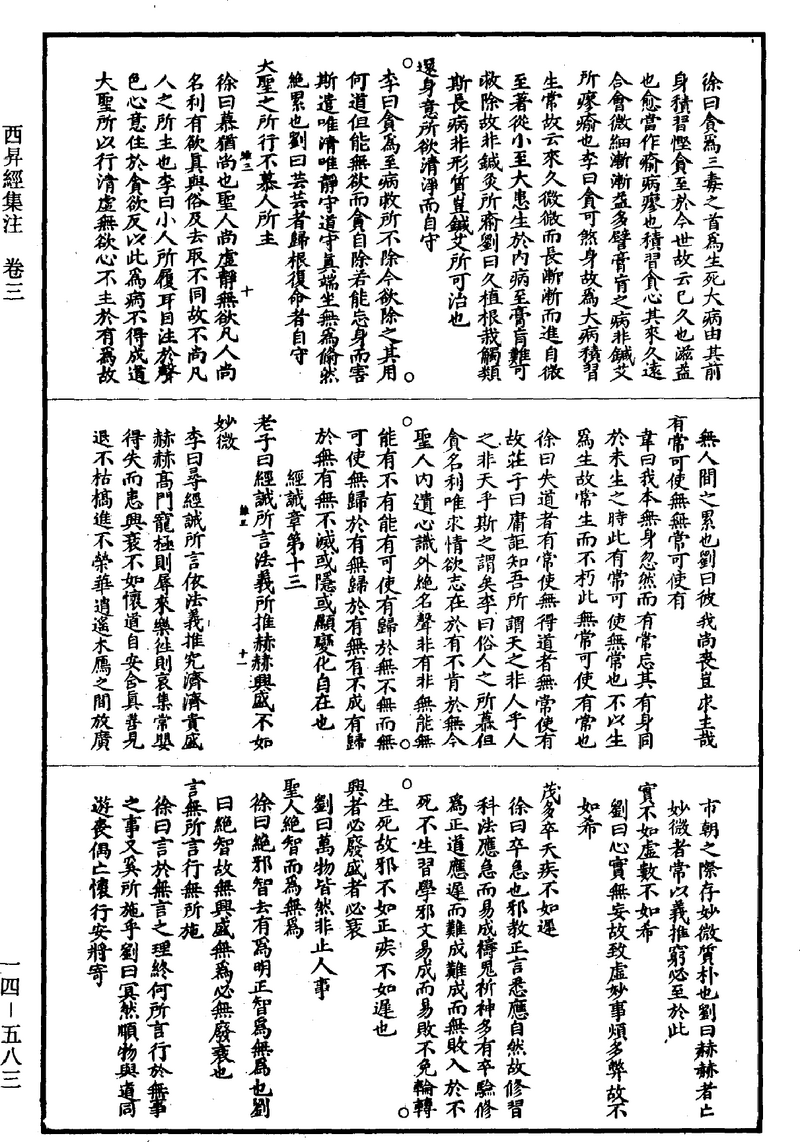 徐曰貪爲三毒之首爲生死大病由其前
身積習慳貪至於今世故云已久也滋益
也愈當作瘉病瘳也積習貪心其來久遠
合會微細漸漸益多譬膏肓之病非鍼艾
所瘳瘉也李曰貪可煞身故爲大病積習
生常故云來久微微而長漸漸而進自微
至著從小至大患生於內病至膏肓難可
救除故非鍼灸所痊劉曰久植根栽觸類
斯長病非形質豈鍼艾所可治也
還身意所欲清淨而自守
李曰貪爲至病救所不除今欲除之其用
何道但能無欲而貪自除若能忘身而害
斯遣唯清唯靜守道守真端坐無爲翛然
絕累也劉曰芸芸者歸根復命者自守
大聖之所行不慕人所主
徐曰慕猶尚也聖人尚虛靜無欲凡人尚
名利有欲真與俗反去取不同故不尚凡
人之所主也李曰小人所履耳目注於聲
色心意住於貪欲反以此爲病不得成道
大聖所以行清虛無欲心不主於有爲故
無人間之累也劉曰彼我尚喪豈求主哉
有常可使無無常可使有
韋曰我本無身忽然而有常忘其有身同
於未生之時此有常可使無常也不以生
爲生故常生而不朽此無常可使有常也
徐曰失道者有常使無得道者無常使有
故莊子曰庸詎知吾所謂天之非人乎人
之非天乎斯之謂矣李曰俗人之所慕但
貪名利唯求情欲志在於有不肯於無今
聖人內遺心識外絕名聲非有非無能無
能有不有能有可使有歸於無不無而無
可使無歸於有無歸於有無有不成有歸
於無有無不滅或隱或顯變化自在也
經誡章第十三
老子曰經誡所言法義所推赫赫興盛不如
妙微
李曰尋經誡所言依法義推究濟濟貴盛
赫赫高門寵極則辱來樂往則哀集常嬰
得失而恚興衰不如懷道自安含真善見
退不枯槁進不榮華逍遙木鴈之間放廣
市朝之際存妙微質朴也劉曰赫赫者亡
妙微者常以義推窮必至於此
實不如虛數不如希
劉曰心實無妄故致虛妙事煩多弊故不
如希
茂多卒夭疾不如遲
徐曰卒急也邪教正言悉應自然故修習
科法應急而易成禱鬼祈神多有卒驗修
爲正道應遲而難成難成而無敗入於不
死不生習學邪文易成而易敗不免輪轉
生死故邪不如正疾不如遲也
興者必廢盛者必衰
劉曰萬物皆然非止人事
聖人絕智而爲無爲
徐曰絕邪智去有爲明正智爲無爲也劉
曰絕智故無興盛無爲必無廢衰也
言無所言行無所施
徐曰言於無言之理終何所言行於無事
之事又奚所施乎劉曰冥然順物與道同
遊喪偶亡懷行安將寄
西昇經集注　卷三
一四－五八三